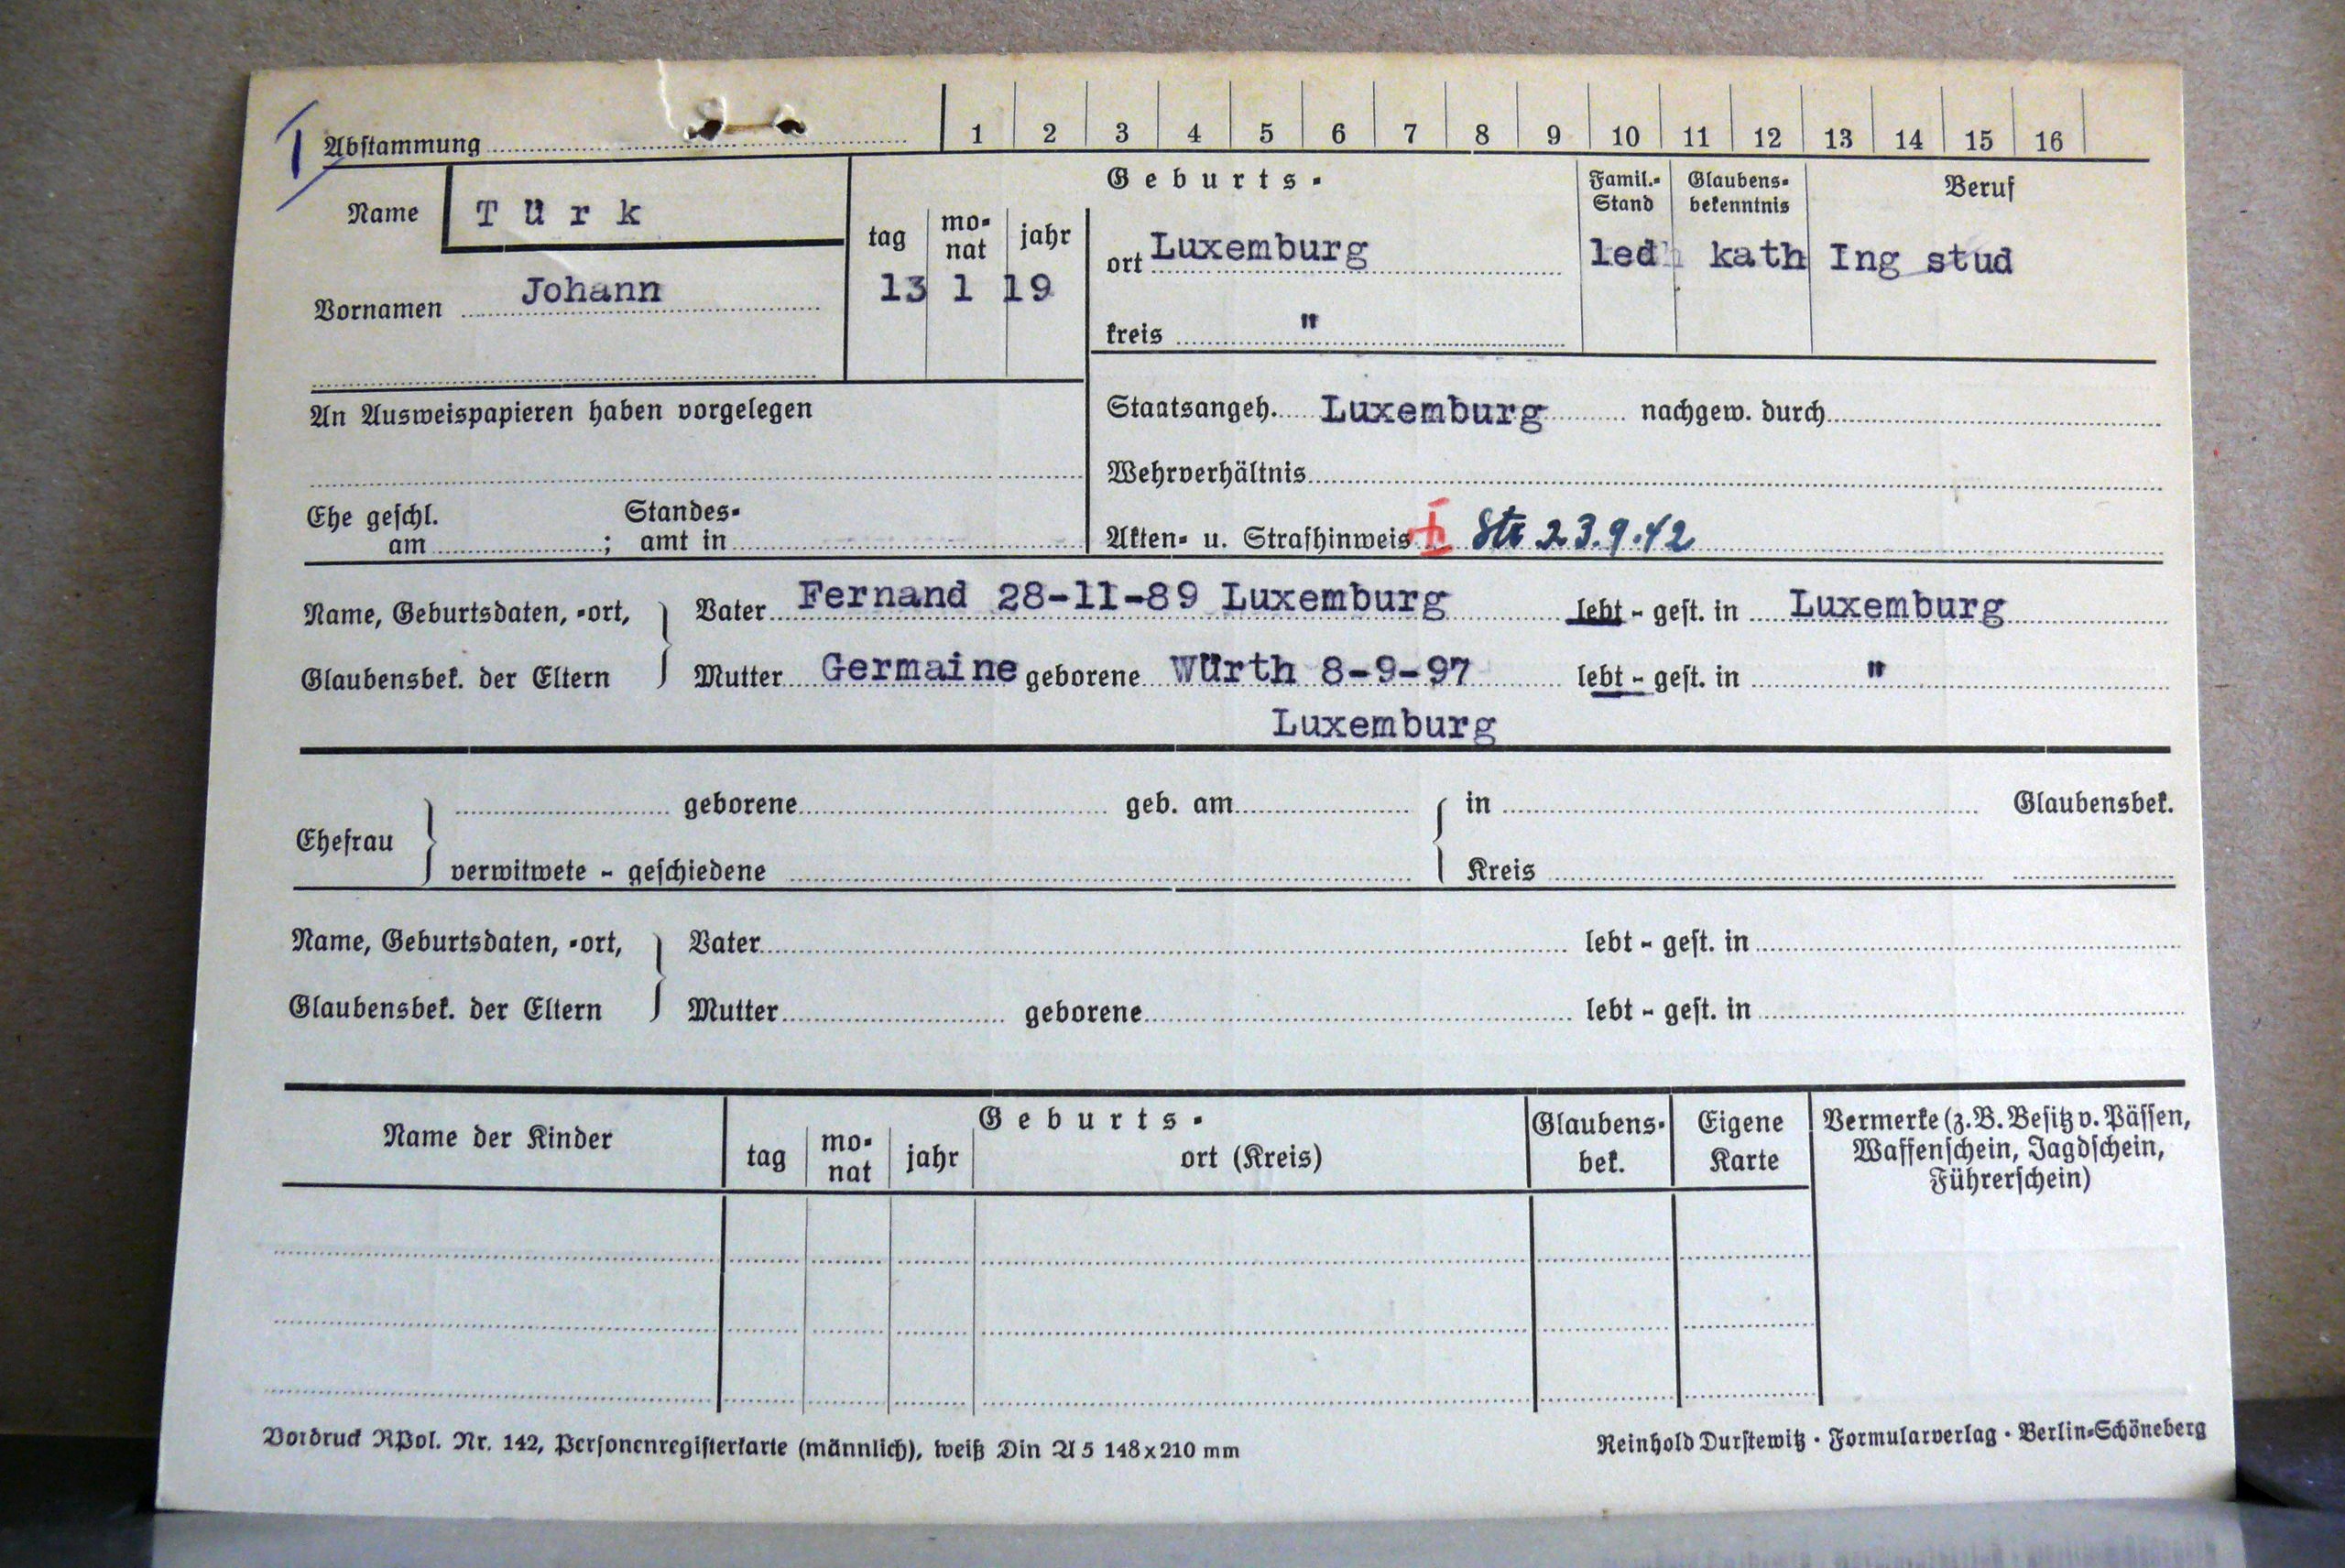 Abstammung 1 2 3 4 5 6 7 8 9 10 11 12 13 14 15 16
Name Türk
Vornamen Johann
Geburts-
tag monat jahr
13 1 19
ort Luxemburg
kreis "
Famil.-Stand Glaubensbekenntnis Beruf
led kath Ing stud
An Ausweispapieren haben vorgelegen
Staatsangeh. Luxemburg nachgew. durch
Wehrverhältnis
Ehe geschl. am ; Standesamt in
Akten- u. Strafhinweis Str 23.9.42
Name, Geburtsdaten, -ort, Vater Fernand 28-11-89 Luxemburg lebt - gest. in Luxemburg
Glaubensbek. der Eltern Mutter Germaine geborene Würth 8-9-97 lebt - gest. in "
Luxemburg
Ehefrau geborene geb. am in Glaubensbek.
verwitwete - geschiedene Kreis
Name, Geburtsdaten, -ort, Vater lebt - gest. in
Glaubensbek. der Eltern Mutter geborene lebt - gest. in
Name der Kinder
Geburts-
tag monat jahr ort (Kreis)
Glaubensbek.
Eigene Karte
Vermerke (z. B. Besitz v. Pässen,
Waffenschein, Jagdschein,
Führerschein)
Vordruck RPol. Nr. 142, Personenregisterkarte (männlich), weiß Din A 5 148x210 mm
Reinhold Durstewitz · Formularverlag · Berlin-Schöneberg